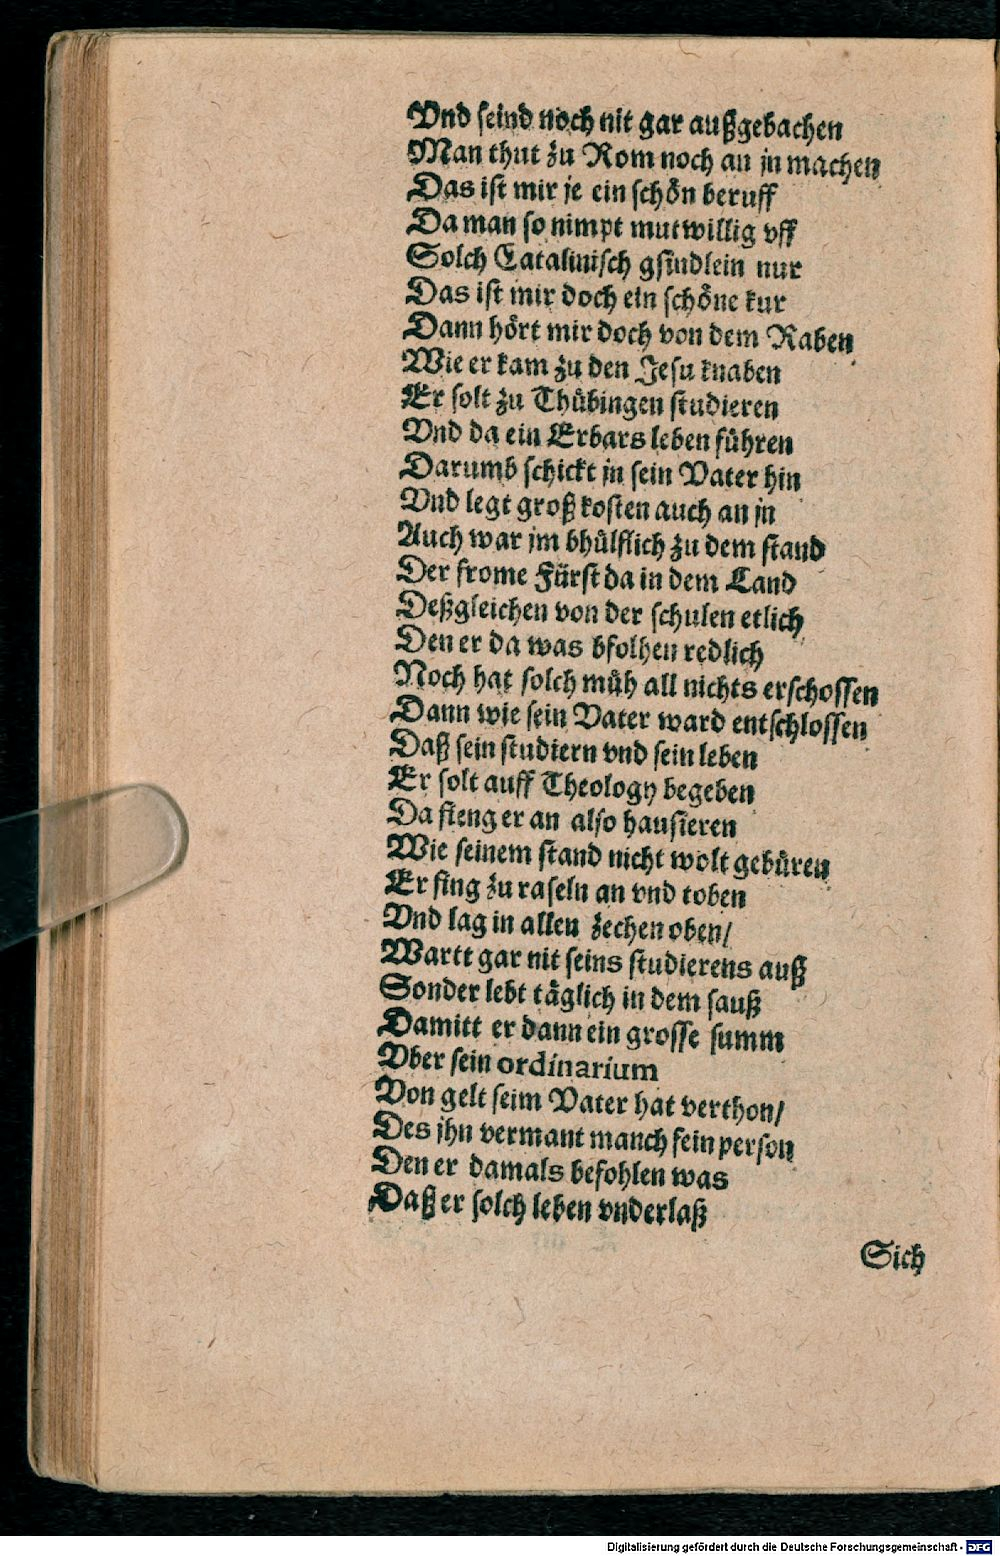 Vnd seind noch nit gar außgebachen
Man thut zu Rom noch an jn machen
Das ist mir je ein schön beruff
Da man so nimpt mutwillig vff
Solch Catalinisch gsindlein nur
Das ist mir doch ein schöne kur
Dann hört mir doch von dem Raben
Wie er kam zu den Jesu knaben
Er solt zu Thübingen studieren
Vnd da ein Erbars leben führen
Darumb schickt jn sein Vater hin
Vnd legt groß kosten auch an jn
Auch war jm bhülflich zu dem stand
Der frome Fürst da in dem Land
Deßgleichen von der schulen etlich
Den er da was bfolhen redlich
Noch hat solch müh all nichts erschossen
Dann wie sein Vater ward entschlossen
Daß sein studiern vnd sein leben
Er solt auff Theology begeben
Da fieng er an also hausieren
Wie seinem stand nicht wolt gebüren
Er fing zu raseln an vnd toben
Vnd lag in allen zechen oben/
Wartt gar nit seins studierens auß
Sonder lebt täglich in dem sauß
Damitt er dann ein grosse summ
Vber sein ordinarium
Von gelt seim Vater hat verthon/
Des jhn vermant manch fein person
Den er damals befohlen was
Daß er solch leben vnderlaß
Sich
Digitalisierung gefördert durch die Deutsche Forschungsgemeinschaft - DFG